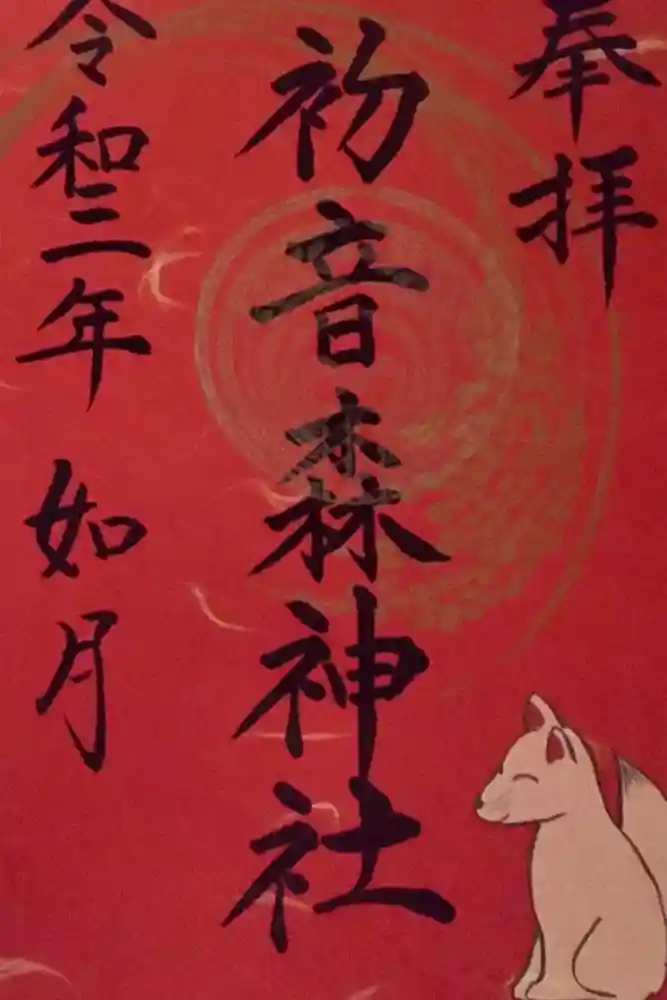 奉拝
初音森神社
令和三年 如月